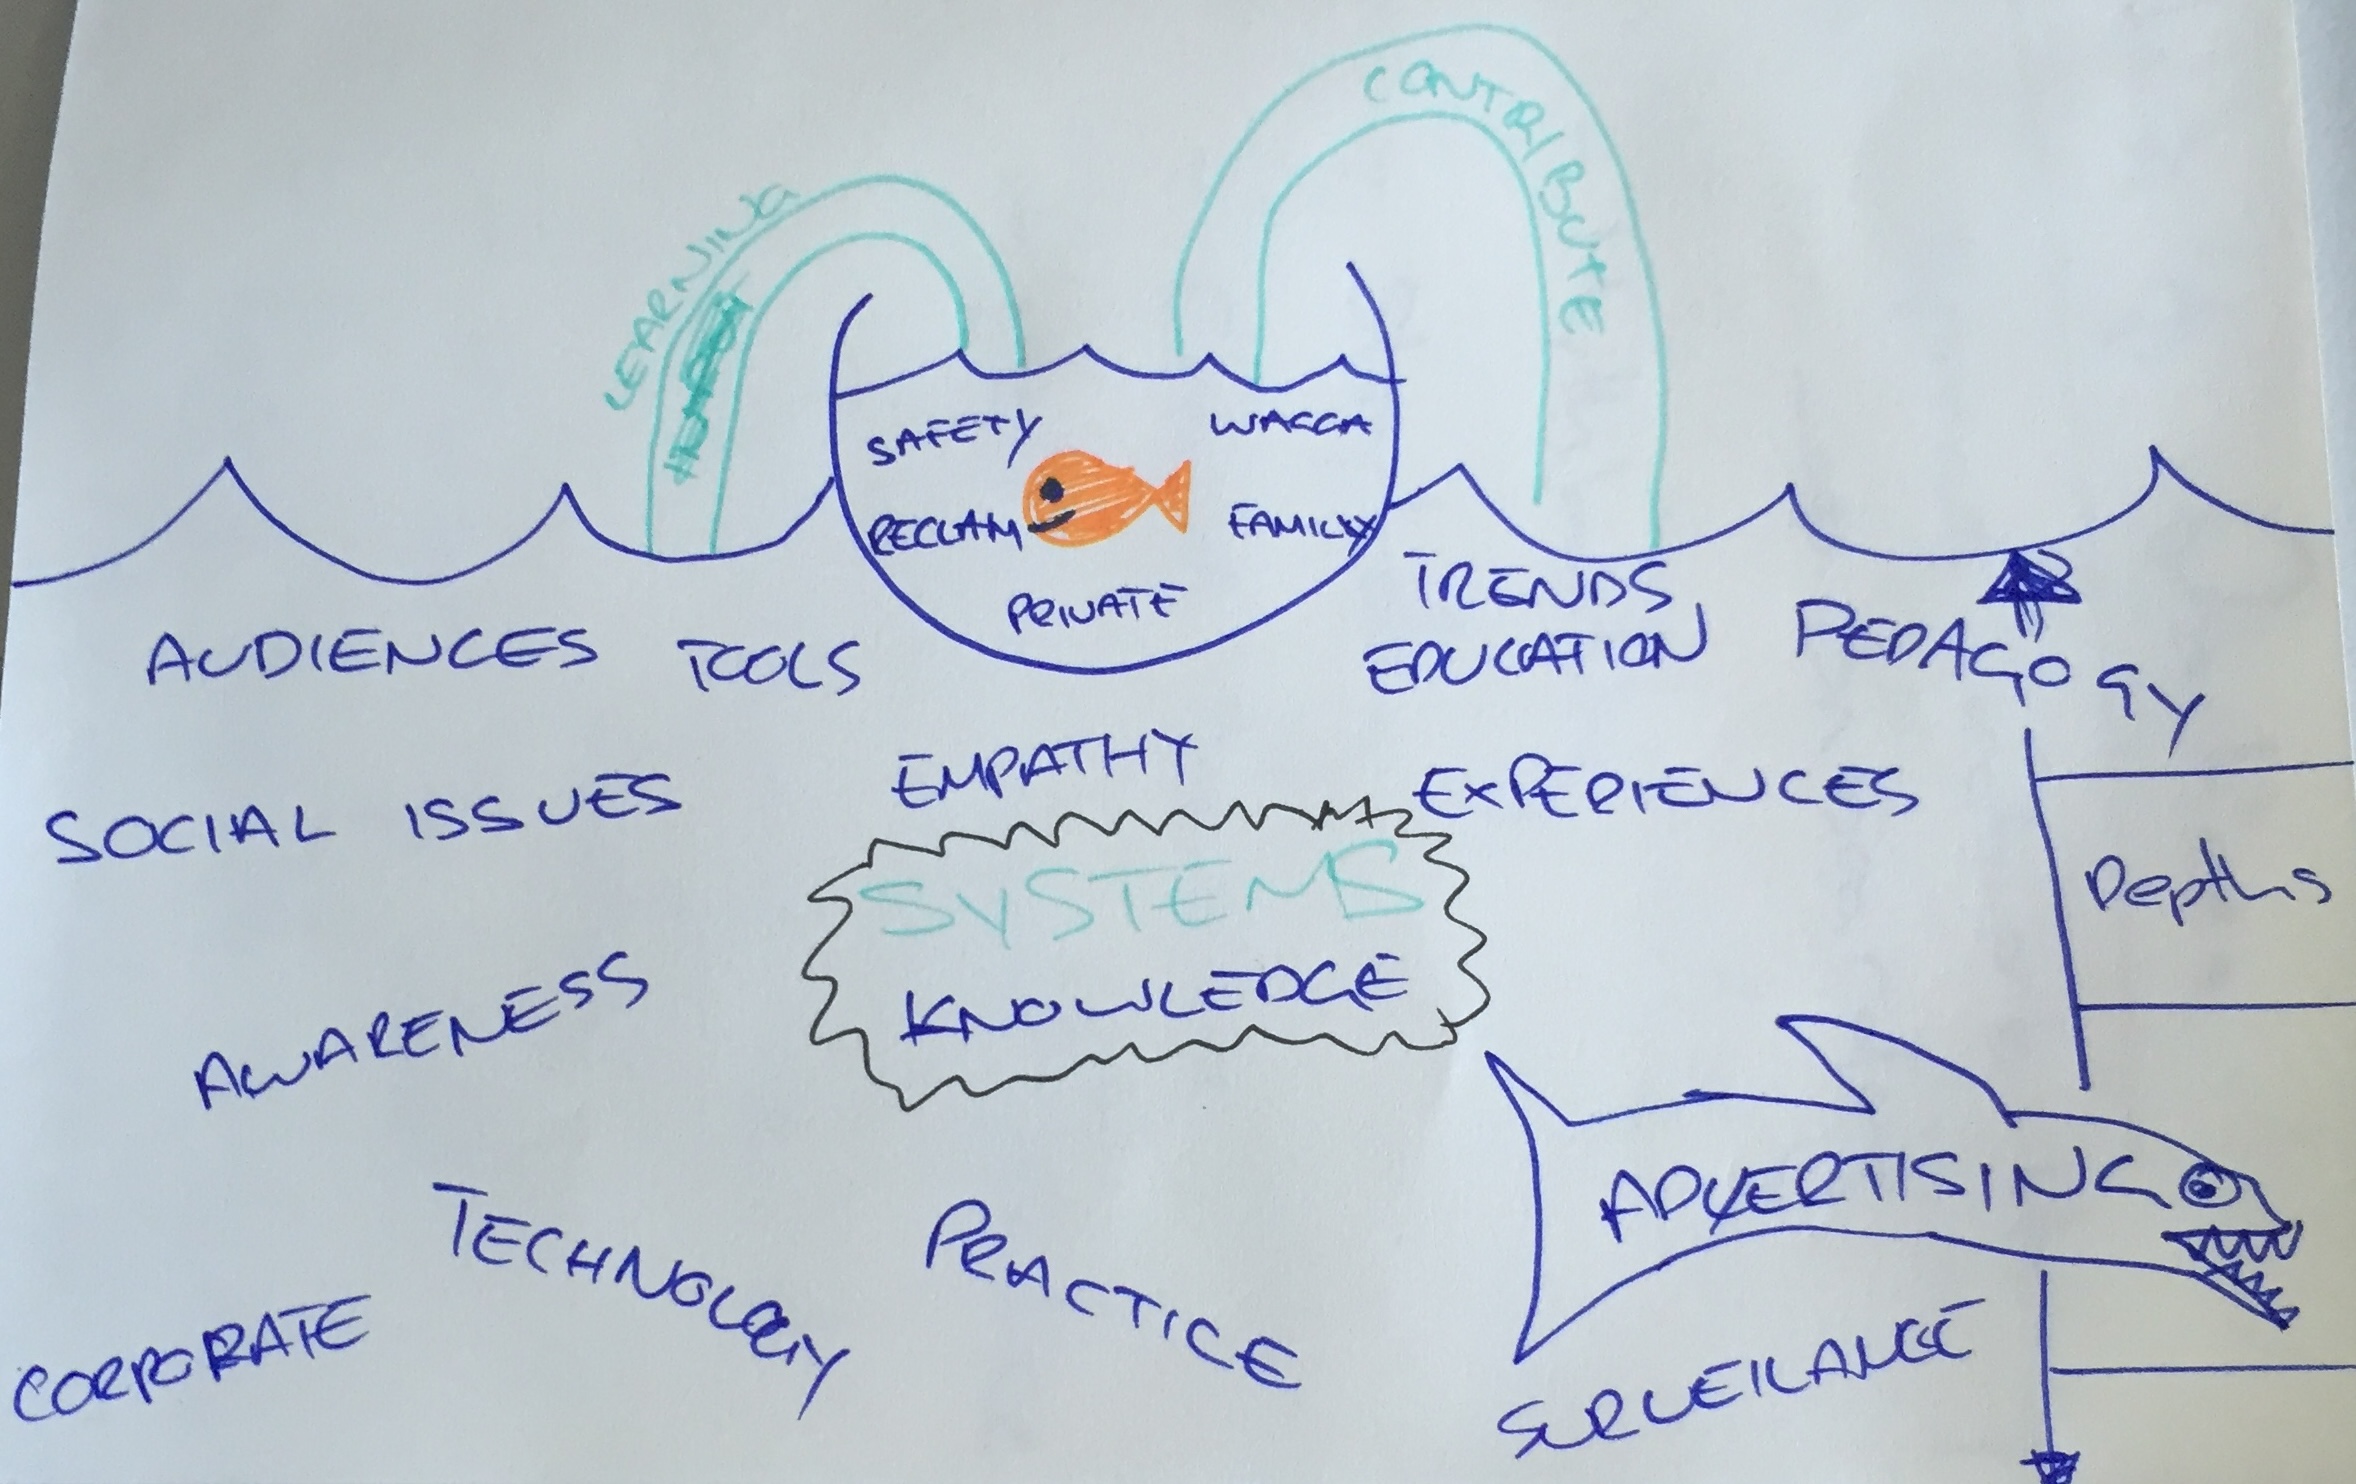 CONTRIBUTE
LEARNING
SAFETY
WAGGA
RECLAIM
FAMILY
PRIVATE
TRENDS
AUDIENCES
TOOLS
EDUCATION
PEDAGOGY
EMPATHY
SOCIAL ISSUES
EXPERIENCES
SYSTEMS
Depths
KNOWLEDGE
AWARENESS
ADVERTISING
TECHNOLOGY
PRACTICE
CORPORATE
SURVEILANCE